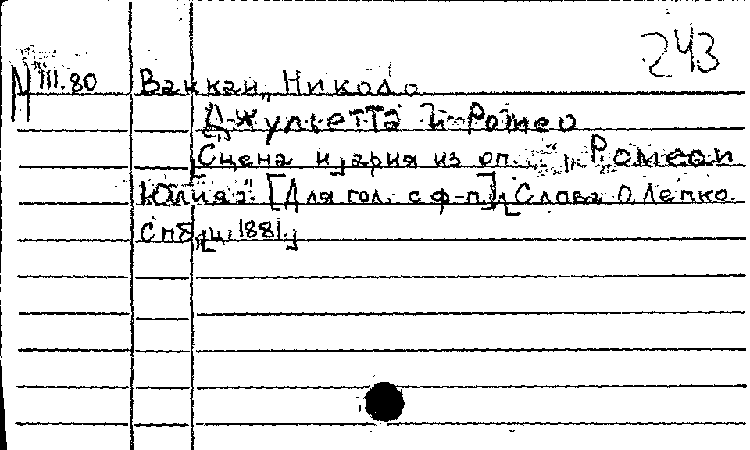 243
М III.80 Ваккаи, Николо
Джульетта и Ромео
[Сцена и] ария из оп. "Ромео и
Юлия". [Для гол. с ф-п.]. [Слова О. Лепко.
Спб., ц. 1881.]